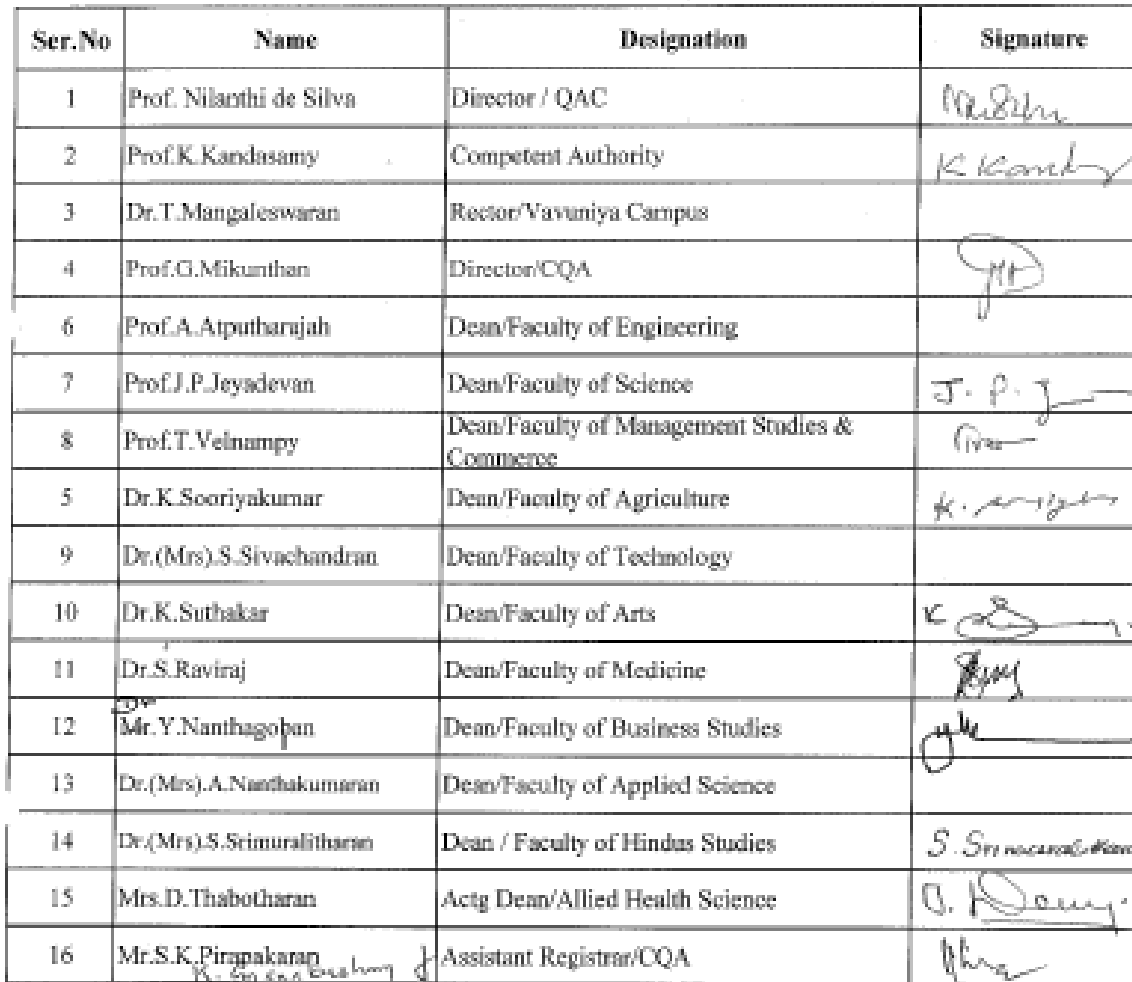 Ser.No Name Designation Signature
1 Prof. Nilanthi de Silva Director / QAC
2 Prof.K.Kandasamy Competent Authority K Kandy
3 Dr.T.Mangaleswaran Rector/Vavuniya Campus
4 Prof.G.Mikunthan Director/CQA
6 Prof.A.Atputharajah Dean/Faculty of Engineering
7 Prof.J.P.Jeyadevan Dean/Faculty of Science J. P. J
8 Prof.T.Velnampy Dean/Faculty of Management Studies &
Commerce
5 Dr.K.Sooriyakumar Dean/Faculty of Agriculture K.
9 Dr.(Mrs).S.Sivachandran Dean/Faculty of Technology
10 Dr.K.Suthakar Dean/Faculty of Arts K
11 Dr.S.Raviraj Dean/Faculty of Medicine
Dr
12 Mr.Y.Nanthagopan Dean/Faculty of Business Studies
13 Dr.(Mrs).A.Nanthakumaran Dean/Faculty of Applied Science
14 Dr.(Mrs).S.Srimuralitharan Dean / Faculty of Hindus Studies S. Srimuralitharan
15 Mrs.D.Thabotharan Actg Dean/Allied Health Science D.
16 Mr.S.K.Pirapakaran Assistant Registrar/CQA